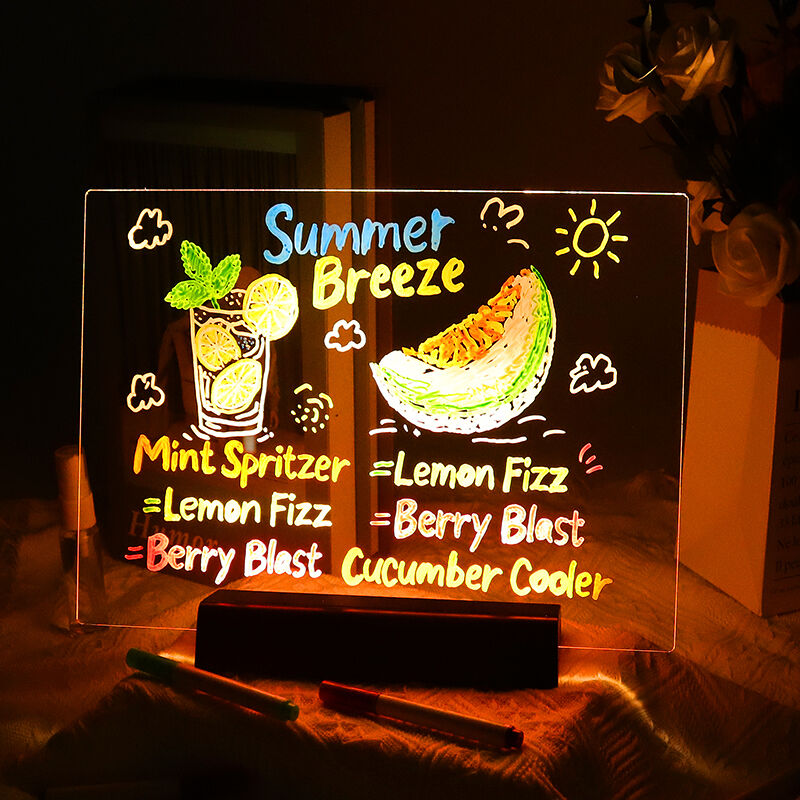 Summer
Breeze
Mint Spritzer
=Lemon Fizz
=Berry Blast
=Lemon Fizz
=Berry Blast
Cucumber Cooler
Humor